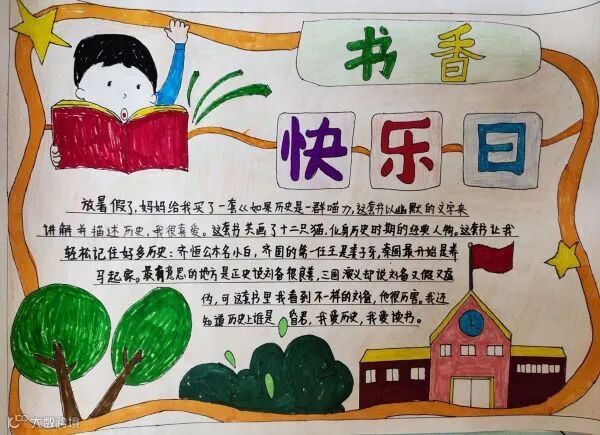 书香
快乐日
放暑假了,妈妈给我买了一套《如果历史是一群喵》,这套书以幽默的文字来
讲解并描述历史,我很喜爱。这套书共画了十二只猫,化身历史时期的经典人物。这套书让我
轻松记住好多历史:齐恒公本名小白,齐国的第一任王是姜子牙,秦国最开始是养
马起家。最有意思的地方是正史说刘备很良善,三国演义却说刘备又假又虚
伪,可这套书里我看到不一样的刘备,他很厉害。我还
知道历史上谁是昏君,我爱历史,我爱读书。
大数跨境